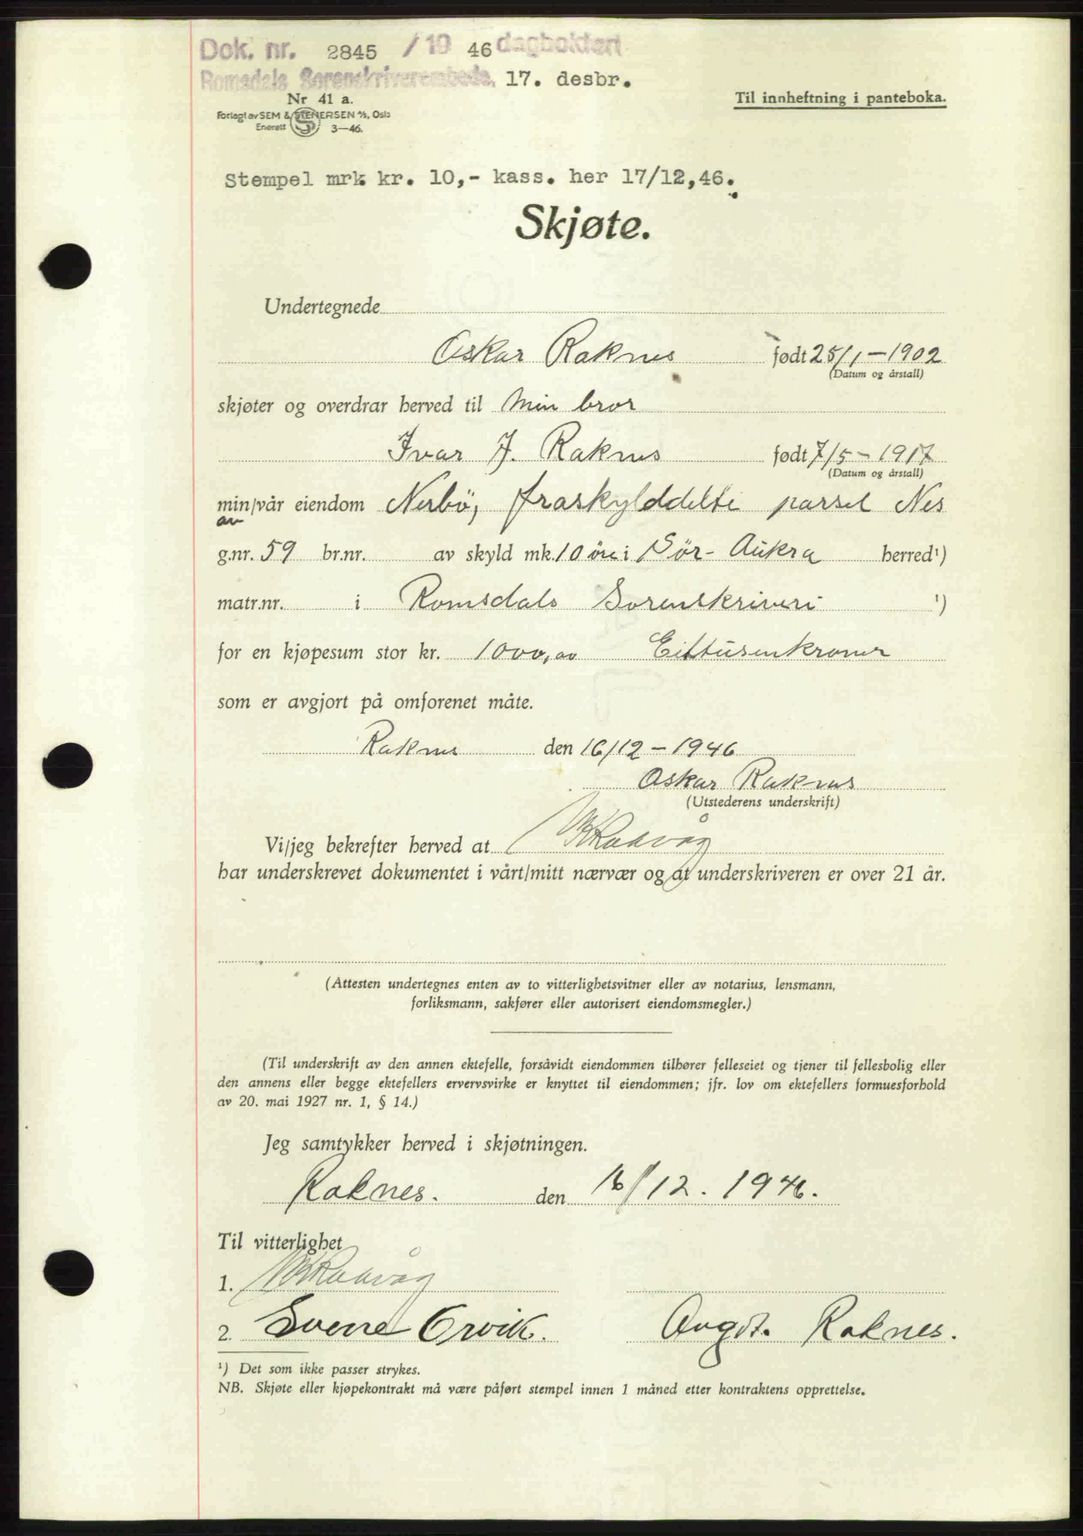 Dok. nr. 2845 / 19 46 dagboktført
Romsdals Sorenskriverembede, 17. desbr.
Nr 41 a.
Forlagt av SEM & STENERSEN A/S, Oslo
Enerett 3—46.
Til innheftning i panteboka.
Stempel mrk kr. 10,- kass. her 17/12,46.
Skjøte.
Undertegnede
Oskar Raknes født 25/1 - 1902
(Datum og årstall)
skjøter og overdrar herved til min bror
Ivar J. Raknes født 7/5 - 1917
(Datum og årstall)
min/vår eiendom Nerbö, fraskylddelte parsel Nes
av
g.nr. 59 br.nr. av skyld mk. 10 öre i Sör-Aukra herred¹)
matr.nr. i Romsdals Sorenskriveri ¹)
for en kjøpesum stor kr. 1000,00 Eittusenkroner
som er avgjort på omforenet måte.
Raknes den 16/12 - 1946
Oskar Raknes
(Utstederens underskrift)
Vi/jeg bekrefter herved at
har underskrevet dokumentet i vårt/mitt nærvær og at underskriveren er over 21 år.
(Attesten undertegnes enten av to vitterlighetsvitner eller av notarius, lensmann,
forliksmann, sakfører eller autorisert eiendomsmegler.)
(Til underskrift av den annen ektefelle, forsåvidt eiendommen tilhører felleseiet og tjener til fellesbolig eller
den annens eller begge ektefellers ervervsvirke er knyttet til eiendommen; jfr. lov om ektefellers formuesforhold
av 20. mai 1927 nr. 1, § 14.)
Jeg samtykker herved i skjøtningen.
Raknes. den 16/12. 1946.
Til vitterlighet
1.
2. Sverre Orvik. Augst. Raknes.
¹) Det som ikke passer strykes.
NB. Skjøte eller kjøpekontrakt må være påført stempel innen 1 måned etter kontraktens opprettelse.